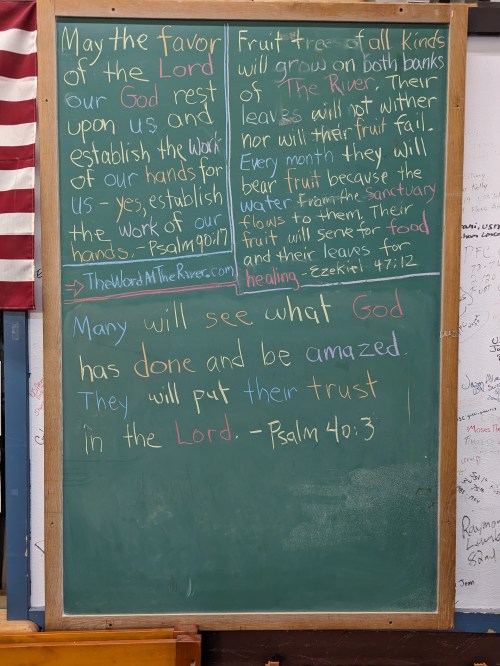 May the favor
of the Lord
our God rest
upon us and
establish the work
of our hands for
us - yes, establish
the work of our
hands. - Psalm 90:17
Fruit trees of all kinds
will grow on both banks
of The River. Their
leaves will not wither
nor will their fruit fail.
Every month they will
bear fruit because the
water from the sanctuary
flows to them. Their
fruit will serve for food
and their leaves for
healing - Ezekiel 47:12
⇒ TheWordAtTheRiver.com
Many will see what God
has done and be amazed.
They will put their trust
in the Lord. - Psalm 40:3
82nd